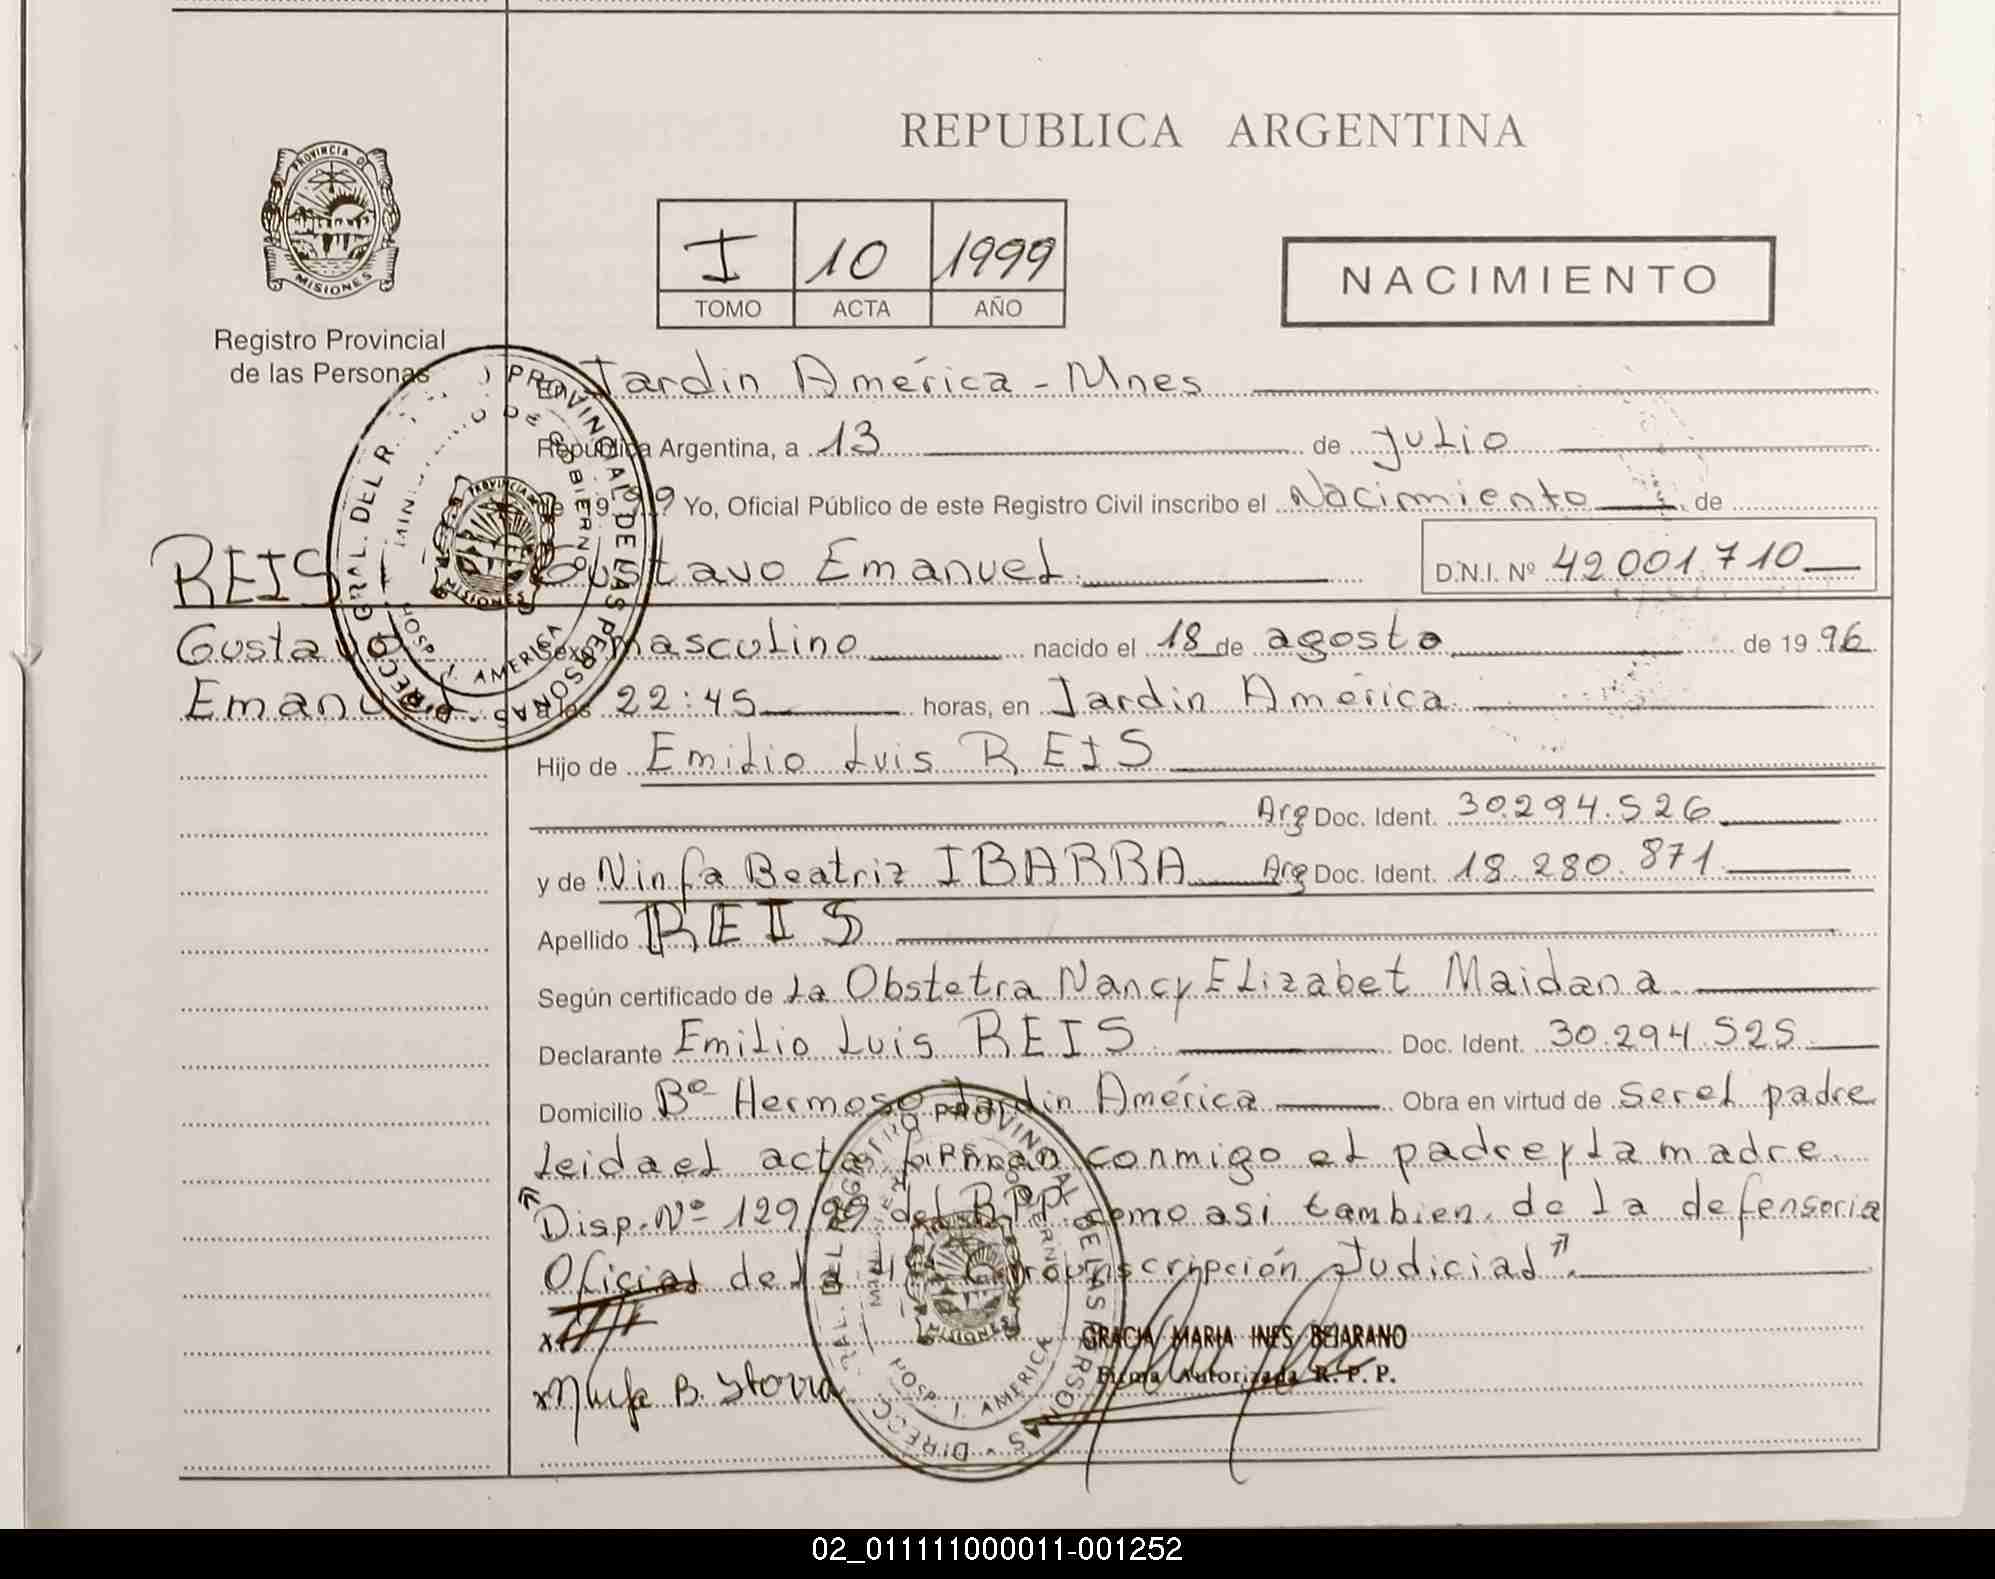 REPUBLICA ARGENTINA
PROVINCIA D
MISIONES
Registro Provincial
de las Personas
I 10 1999
TOMO ACTA AÑO
NACIMIENTO
En Jardin América - Mnes
República Argentina, a 13 de Julio
de 1999 Yo, Oficial Público de este Registro Civil inscribo el Nacimiento de
REIS
Gustavo Emanuel D.N.I. Nº 42 001.710
Gustavo
Emanuel
Sexo masculino nacido el 18 de agosto de 19 96
a las 22:45 horas, en Jardin América
Hijo de Emilio Luis REIS
Arg Doc. Ident. 30.294.526
y de Ninfa Beatriz IBARRA Arg Doc. Ident. 18.280.871
Apellido REIS
Según certificado de La Obstetra Nancy Elizabet Maidana
Declarante Emilio Luis REIS Doc. Ident. 30.294.525
Domicilio Bº Hermoso Jardin América Obra en virtud de Ser el padre
Leida el acta firman conmigo el padre y la madre
"Disp. Nº 129/99 del RPP como asi tambien de la defensoria
Oficial de la Circunscripción Judicial".
GRACIA MARIA INES BEJARANO
Firma Autorizada R. P. P.
DIRECC. GRAL. DEL REGISTRO PROVINCIAL DE LAS PERSONAS
HOSP. J. AMERICA
02_011111000011-001252